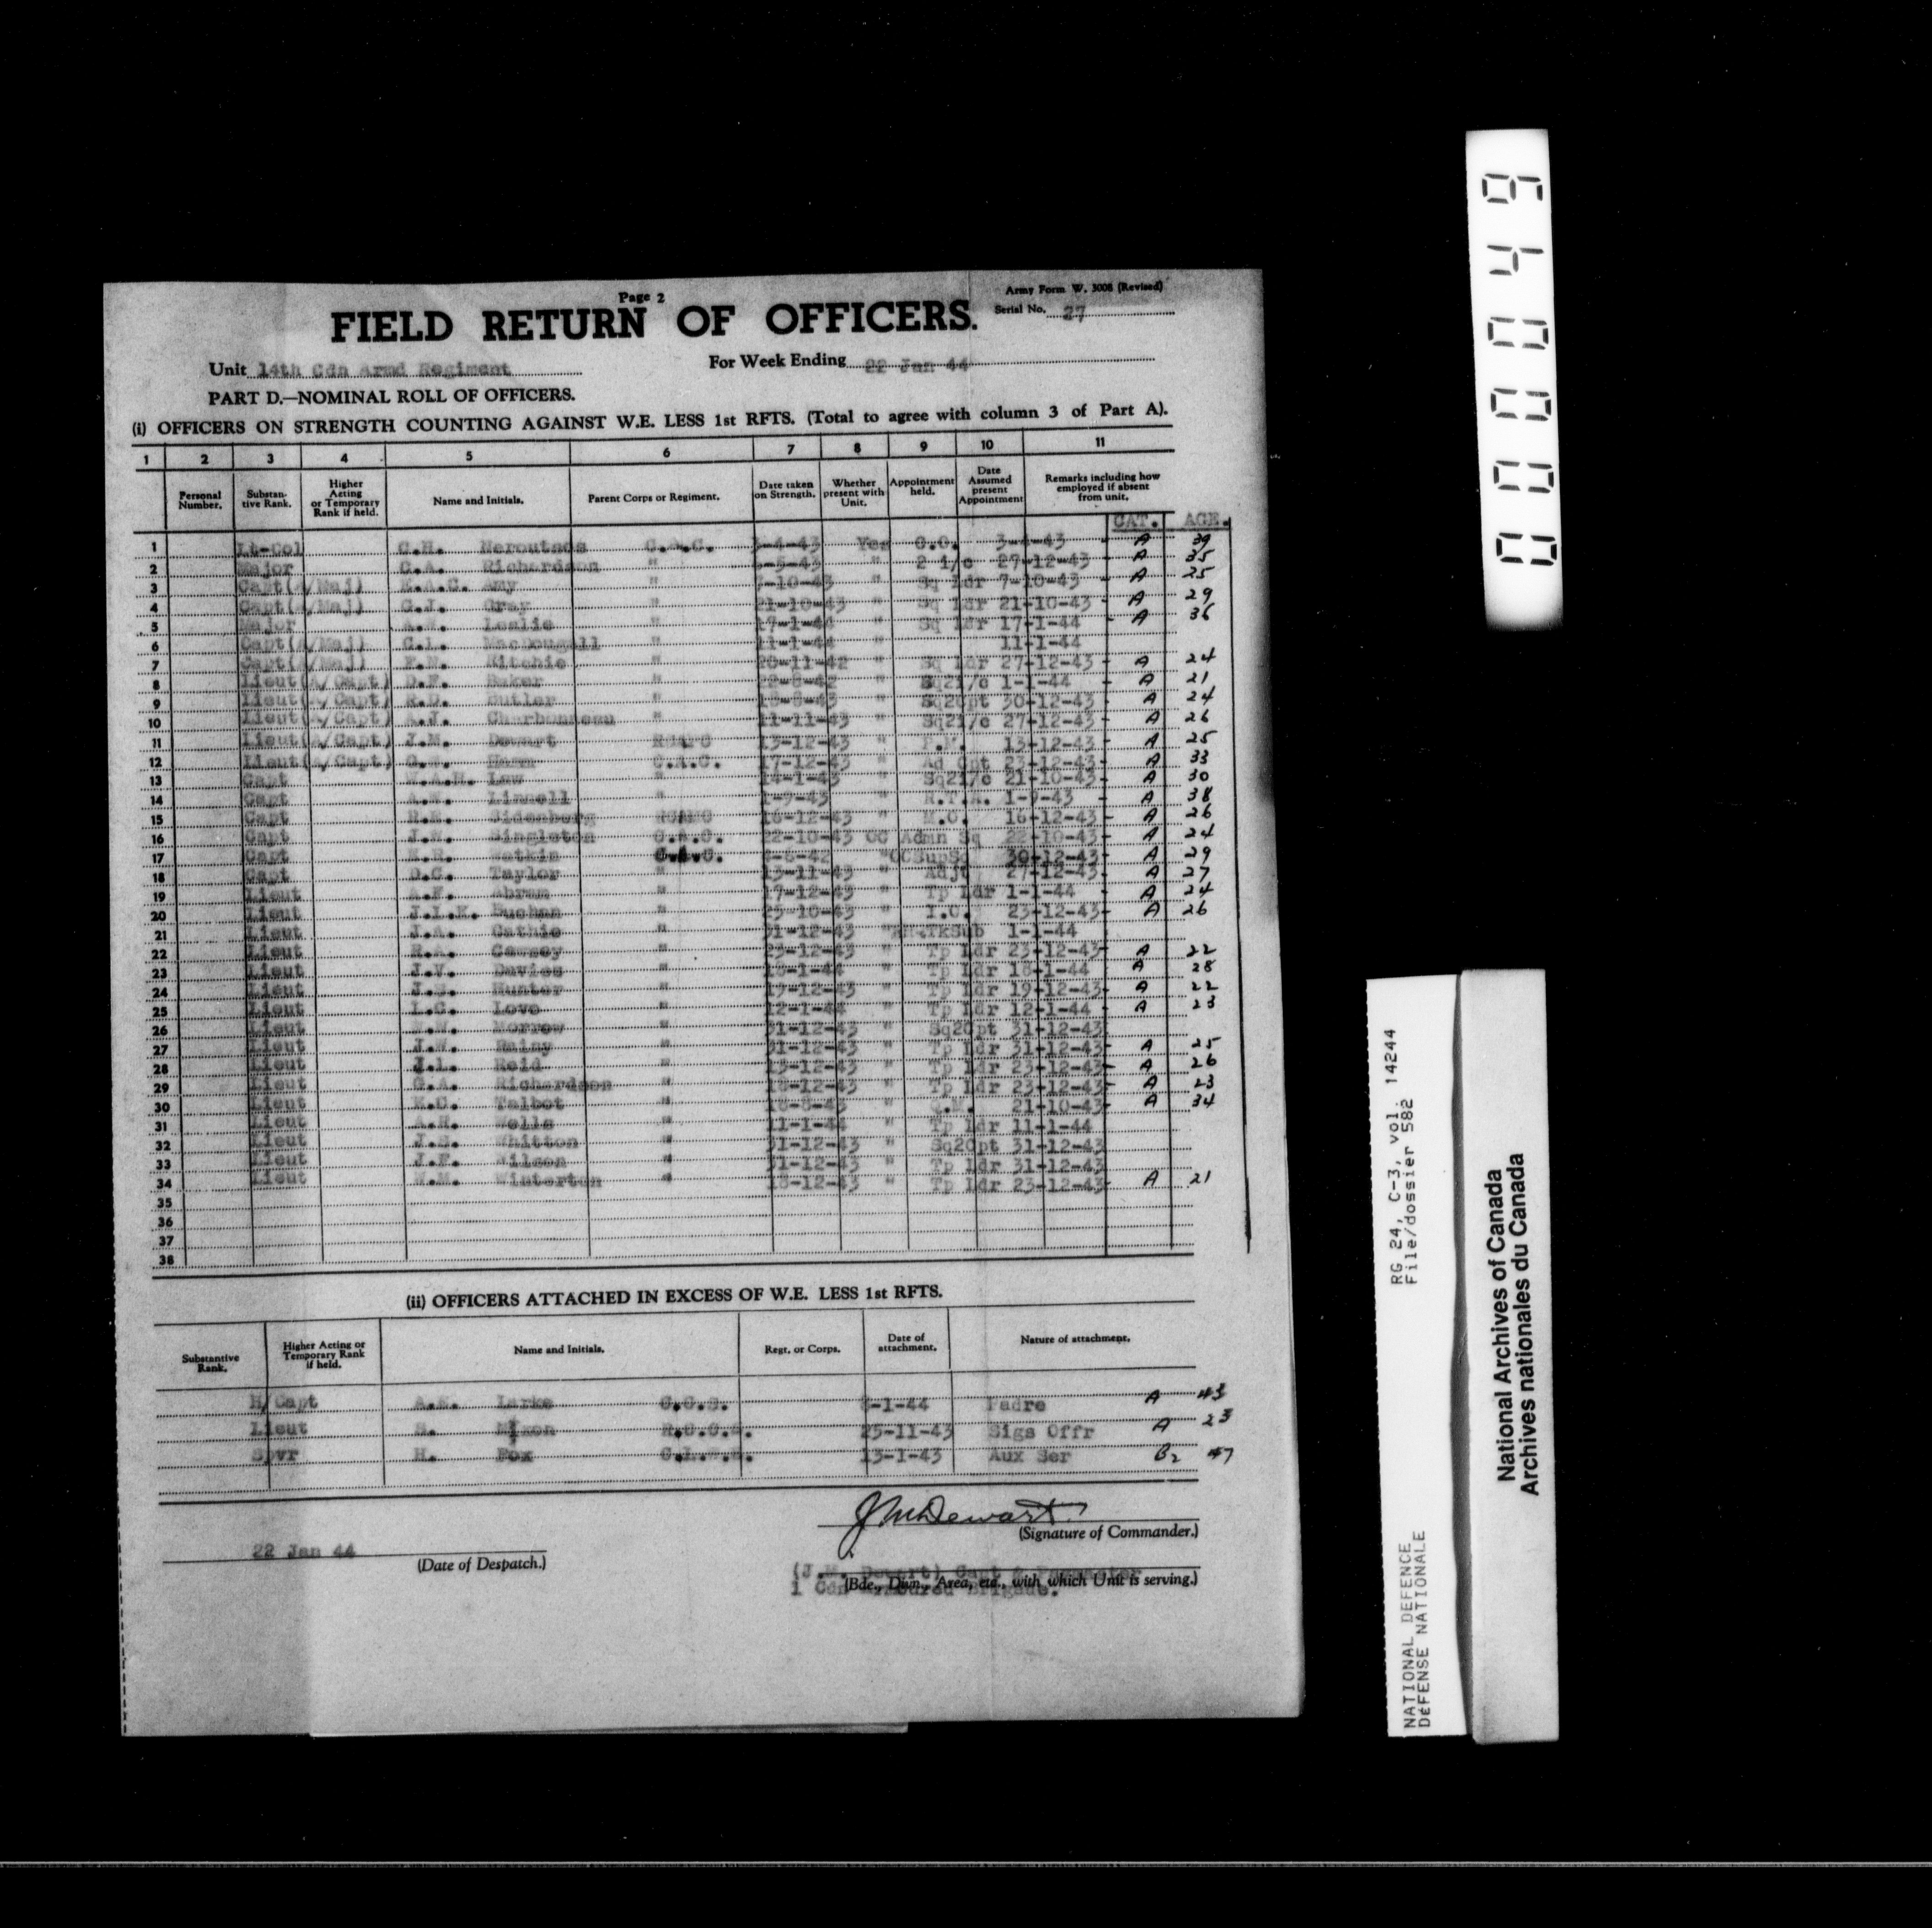 Page 2
Army Form W. 3008 (Revised)
FIELD RETURN OF OFFICERS.
Serial No. 27
Unit 14th Cdn Armd Regiment
For Week Ending 22 Jan 44
PART D.—NOMINAL ROLL OF OFFICERS.
(i) OFFICERS ON STRENGTH COUNTING AGAINST W.E. LESS 1st RFTS. (Total to agree with column 3 of Part A).
1 2 3 4 5 6 7 8 9 10 11
Personal Number. Substantive Rank. Higher Acting or Temporary Rank if held. Name and Initials. Parent Corps or Regiment. Date taken on Strength. Whether present with Unit. Appointment held. Date Assumed present Appointment Remarks including how employed if absent from unit.
CAT. AGE.
1 Lt-Col C.H. Neroutsos C.A.C. 3-4-43 Yes O.C. 3-4-43 A 39
2 Major C.A. Richardson " 43 " 2 i/c 27-12-43 A 35
3 Capt(A/Maj) E.A.C. Amy " 7-10-43 " Sq Ldr 7-10-43 A 25
4 Capt(A/Maj) G.J. Gray " 21-10-43 " Sq Ldr 21-10-43 A 29
5 Major Leslie " 17-1-44 " Sq Ldr 17-1-44 A 36
6 Capt(A/Maj) G.L. MacDougall " 11-1-44 " 11-1-44
7 Capt(A/Maj) F.N. Ritchie " 20-11-42 " Sq Ldr 27-12-43 A 24
8 Lieut(A/Capt) D.F. Baker " " Sq2i/c 1-1-44 A 21
9 Lieut(A/Capt) Butler " " Sq2Cpt 30-12-43 A 24
10 Lieut(A/Capt) A.J. Charbonneau " 11-11-43 " Sq2i/c 27-12-43 A 26
11 Lieut(A/Capt) J.M. Dewart RCAPC 13-12-43 " P.M. 13-12-43 A 25
12 Lieut(A/Capt) C.A.C. 17-12-43 " Ad Cpt 23-12-43 A 33
13 Capt W.A.H. Law " 14-1-43 " Sq2i/c 21-10-43 A 30
14 Capt Linnell " 1-9-43 " R.T.A. 1-9-43 A 38
15 Capt 16-12-43 " M.O. 16-12-43 A 26
16 Capt J.W. Singleton C.A.C. 22-10-43 OC Admn Sq 22-10-43 A 24
17 Capt C.A.C. 42 " OCSupSq 30-12-43 A 29
18 Capt D.C. Taylor " 13-11-43 " Adjt 27-12-43 A 27
19 Lieut A.F. Abram " 17-12-43 " Tp Ldr 1-1-44 A 24
20 Lieut J.L.K. Buchan " 23-10-43 " I.O. 23-12-43 A 26
21 Lieut J.A. Cathie " 31-12-43 " 1-1-44
22 Lieut R.A. Causey " 23-12-43 " Tp Ldr 23-12-43 A 22
23 Lieut J.V. Davies " 18-1-44 " Tp Ldr 18-1-44 A 28
24 Lieut J.S. Hunter " 19-12-43 " Tp Ldr 19-12-43 A 22
25 Lieut L.G. Love " 12-1-44 " Tp Ldr 12-1-44 A 23
26 Lieut Morrow " 31-12-43 " Sq2Cpt 31-12-43
27 Lieut J.W. Rainy " 31-12-43 " Tp Ldr 31-12-43 A 25
28 Lieut J.L. Reid " 13-12-43 " Tp Ldr 23-12-43 A 26
29 Lieut G.A. Richardson " 18-12-43 " Tp Ldr 23-12-43 A 23
30 Lieut Talbot " " Q.M. 21-10-43 A 34
31 Lieut A.H. Wells " 11-1-44 " Tp Ldr 11-1-44
32 Lieut J.S. Whitton " 31-12-43 " Sq2Cpt 31-12-43
33 Lieut J.F. Wilson " 31-12-43 " Tp Ldr 31-12-43
34 Lieut W.M. Winterton " 18-12-43 " Tp Ldr 23-12-43 A 21
35
36
37
38
(ii) OFFICERS ATTACHED IN EXCESS OF W.E. LESS 1st RFTS.
Substantive Rank. Higher Acting or Temporary Rank if held. Name and Initials. Regt. or Corps. Date of attachment. Nature of attachment.
H/Capt Larke C.C.S. 1-44 Padre A 43
Lieut Nixon R.C.C.S. 25-11-43 Sigs Offr A 23
Spvr H. Fox 13-1-43 Aux Ser B2 47
J M Dewart
(Signature of Commander.)
22 Jan 44
(Date of Despatch.)
(J.M. Dewart) Capt & Paymaster
(Bde., Divn., Area, etc., with which Unit is serving.)
1 Cdn Armoured Brigade.
000049
RG 24, C-3, vol. 14244
File/dossier 582
NATIONAL DEFENCE
DÉFENSE NATIONALE
National Archives of Canada
Archives nationales du Canada